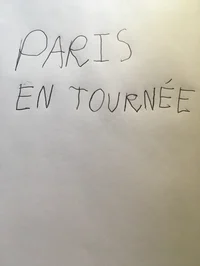 PARIS
EN TOURNÉE